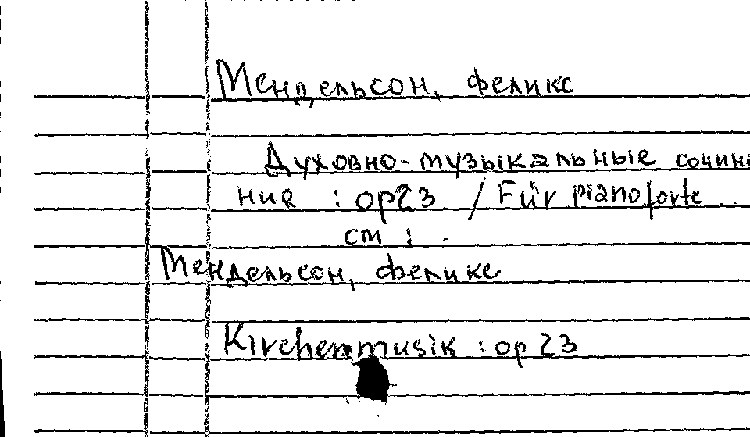 Мендельсон, феликс
Духовно-музыкальные сочине
ние : op 23 / Für pianoforte
см :
Мендельсон, феликс
Kirchenmusik : op 23